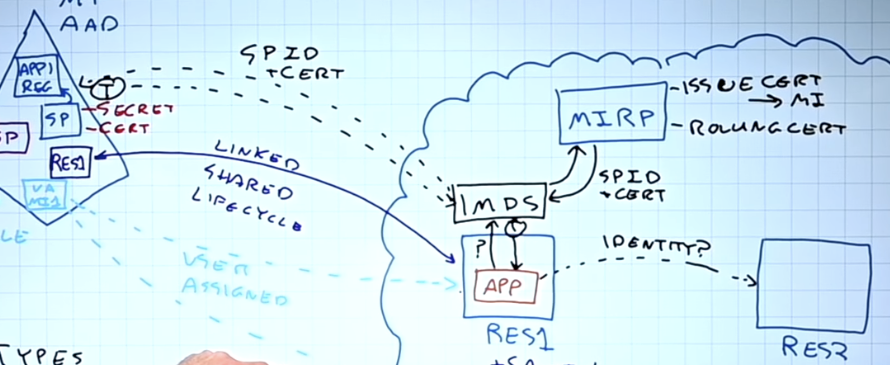 AAD
APP1
REG
T
SP
-SECRET
-CERT
SP
RES1
UA
MI1
SPID
+CERT
LINKED
SHARED
LIFECYCLE
USER
ASSIGNED
MIRP
-ISSUE CERT
→ MI
-ROLLING CERT
IMDS
SPID
+CERT
T
?
APP
RES1
IDENTITY?
RES2
TYPES